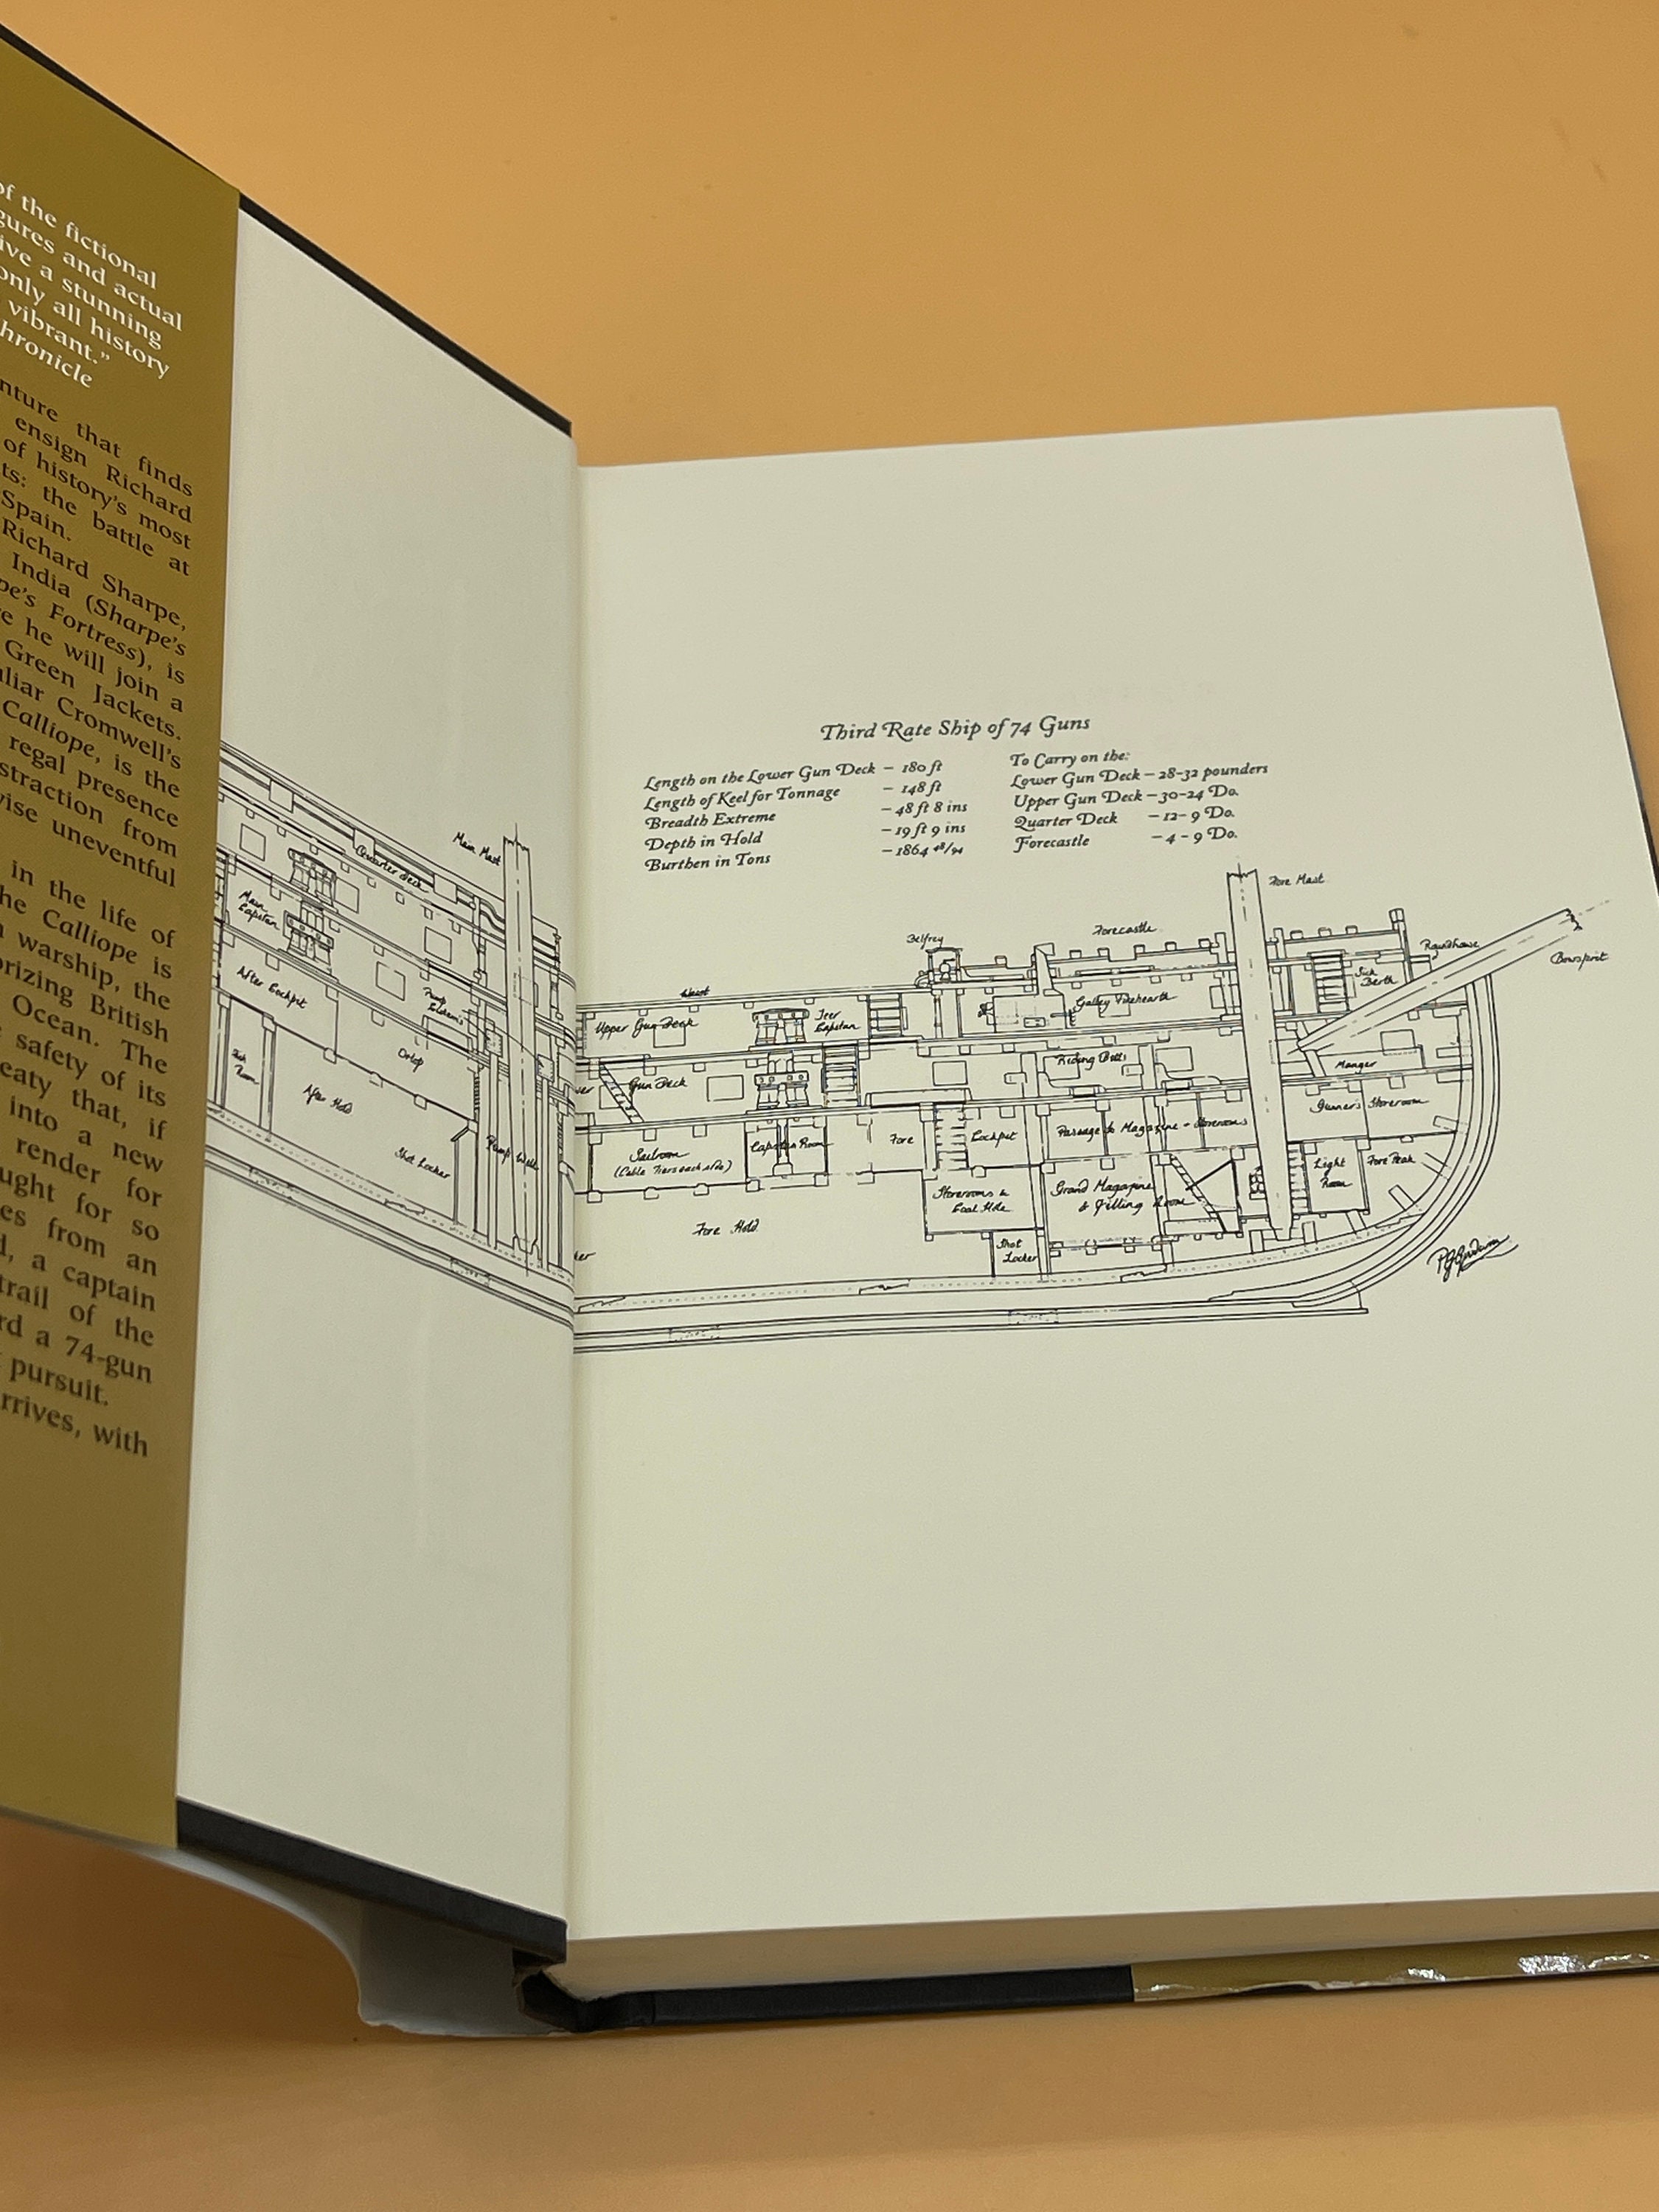 of the fictional
gures and actual
ive a stunning
only all history
vibrant.”
hronicle
nture that finds
ensign Richard
of history's most
ts: the battle at
Spain.
Richard Sharpe,
India (Sharpe's
pe's Fortress), is
e he will join a
Green Jackets.
liar Cromwell's
Calliope, is the
regal presence
straction from
wise uneventful
in the life of
he Calliope is
n warship, the
orizing British
Ocean. The
safety of its
eaty that, if
into a new
render for
ought for so
es from an
d, a captain
trail of the
rd a 74-gun
pursuit.
rrives, with
Third Rate Ship of 74 Guns
Length on the Lower Gun Deck – 180 ft
Length of Keel for Tonnage – 148 ft
Breadth Extreme – 48 ft 8 ins
Depth in Hold – 19 ft 9 ins
Burthen in Tons – 1864 48/94
To Carry on the:
Lower Gun Deck – 28-32 pounders
Upper Gun Deck – 30-24 Do.
Quarter Deck – 12-9 Do.
Forecastle – 4-9 Do.
Main Mast
Quarter deck
Main
Capstan
After Cockpit
Orlop
After Hold
Shot Locker
Pump Well
Room
Fore Mast
Forecastle
Belfrey
Roundhouse
Bowsprit
Sick
Berth
Waist
Upper Gun Deck
Jeer
Capstan
Galley Firehearth
Gun Deck
Riding Bitts
Manger
Gunner's Storeroom
Sailroom
(Cable Tiers each side)
Capstan Room
Fore
Cockpit
Passage to Magazine & Storerooms
Light
Room
Fore Peak
Storerooms &
Coal Hole
Grand Magazine
& Filling Room
Fore Hold
Shot
Locker